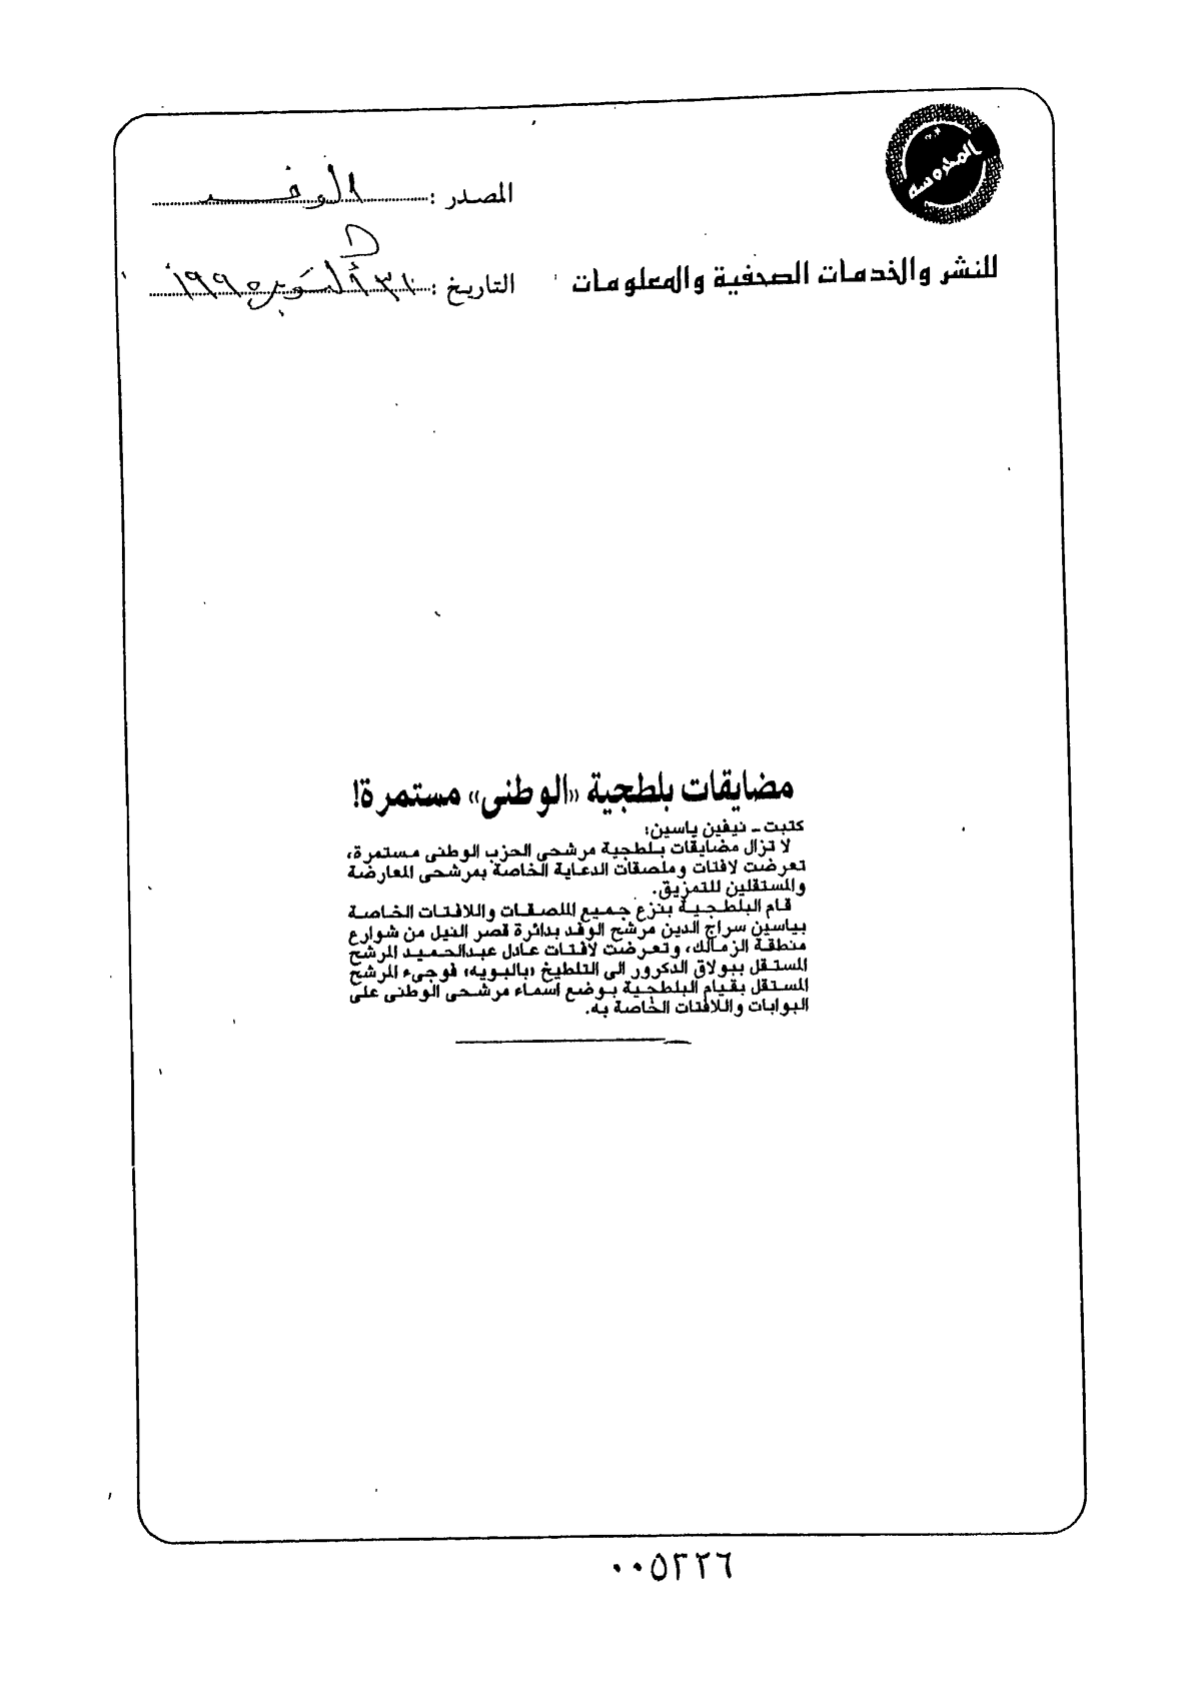 المحروسة
المصدر : الوفد
للنشر والخدمات الصحفية والمعلومات
التاريخ : ٣١ أكتوبر ١٩٩٥
مضايقات بلطجية «الوطنى» مستمرة!
كتبت ـ نيفين ياسين:
لا تزال مضايقات بلطجية مرشحى الحزب الوطنى مستمرة،
تعرضت لافتات وملصقات الدعاية الخاصة بمرشحى المعارضة
والمستقلين للتمزيق.
قام البلطجية بنزع جميع الملصقات واللافتات الخاصة
بياسين سراج الدين مرشح الوفد بدائرة قصر النيل من شوارع
منطقة الزمالك، وتعرضت لافتات عادل عبدالحميد المرشح
المستقل ببولاق الدكرور الى التلطيخ «بالبويه» فوجىء المرشح
المستقل بقيام البلطجية بوضع اسماء مرشحى الوطنى على
البوابات واللافتات الخاصة به.
٠٠٥٢٢٦